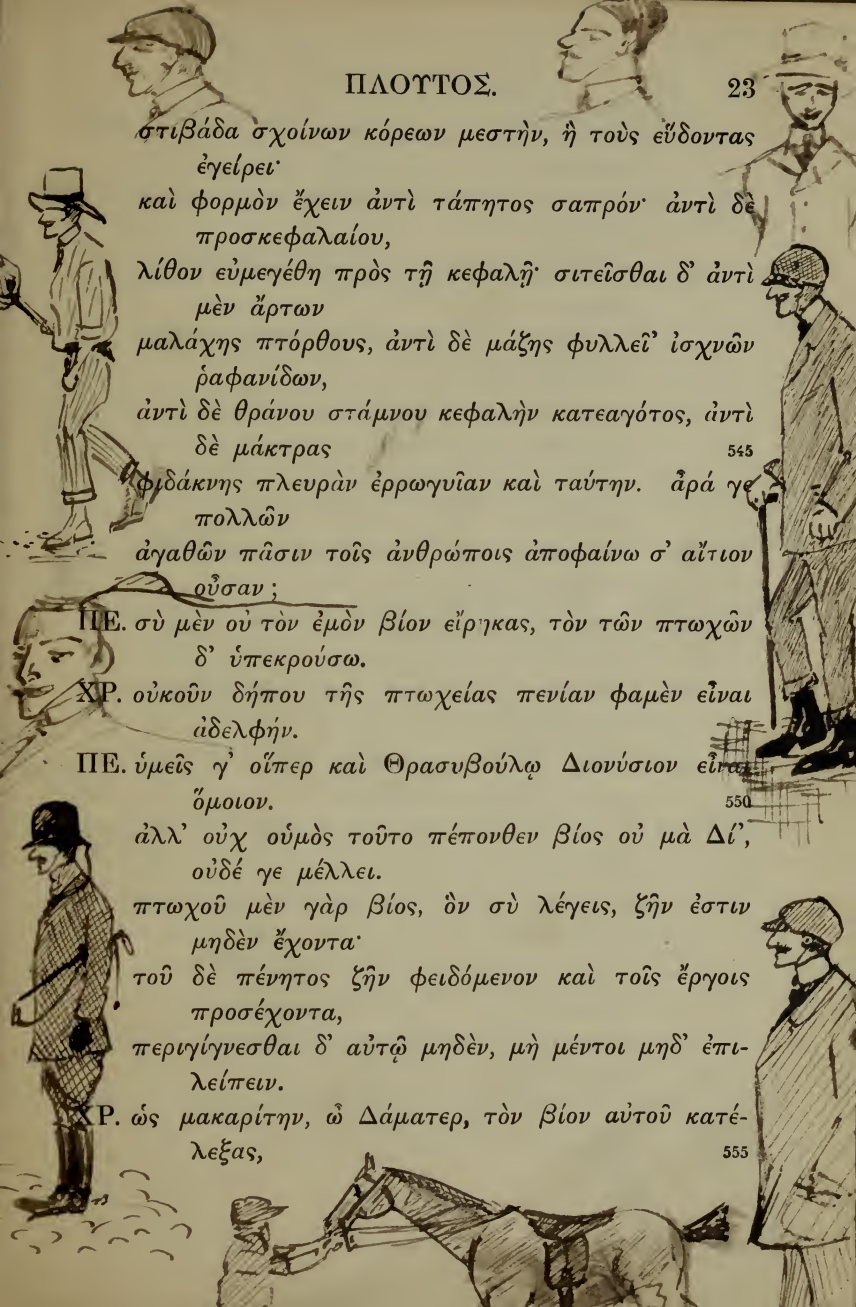 ΠΛΟΥΤΟΣ. 23
στιβάδα σχοίνων κόρεων μεστὴν, ἣ τοὺς εὕδοντας
ἐγείρει·
καὶ φορμὸν ἔχειν ἀντὶ τάπητος σαπρόν· ἀντὶ δὲ
προσκεφαλαίου,
λίθον εὐμεγέθη πρὸς τῇ κεφαλῇ· σιτεῖσθαι δ’ ἀντὶ
μὲν ἄρτων
μαλάχης πτόρθους, ἀντὶ δὲ μάζης φυλλεῖ’ ἰσχνῶν
ῥαφανίδων,
ἀντὶ δὲ θράνου στάμνου κεφαλὴν κατεαγότος, ἀντὶ
δὲ μάκτρας 545
φιδάκνης πλευρὰν ἐρρωγυῖαν καὶ ταύτην. ἆρά γε
πολλῶν
ἀγαθῶν πᾶσιν τοῖς ἀνθρώποις ἀποφαίνω σ’ αἴτιον
οὖσαν ;
ΠΕ. σὺ μὲν οὐ τὸν ἐμὸν βίον εἴρηκας, τὸν τῶν πτωχῶν
δ’ ὑπεκρούσω.
ΧΡ. οὐκοῦν δήπου τῆς πτωχείας πενίαν φαμὲν εἶναι
ἀδελφήν.
ΠΕ. ὑμεῖς γ’ οἵπερ καὶ Θρασυβούλῳ Διονύσιον εἶναι
ὅμοιον. 550
ἀλλ’ οὐχ οὑμὸς τοῦτο πέπονθεν βίος οὐ μὰ Δί’,
οὐδέ γε μέλλει.
πτωχοῦ μὲν γὰρ βίος, ὃν σὺ λέγεις, ζῆν ἐστιν
μηδὲν ἔχοντα·
τοῦ δὲ πένητος ζῆν φειδόμενον καὶ τοῖς ἔργοις
προσέχοντα,
περιγίγνεσθαι δ’ αὐτῷ μηδὲν, μὴ μέντοι μηδ’ ἐπι-
λείπειν.
ΧΡ. ὡς μακαρίτην, ὦ Δάματερ, τὸν βίον αὐτοῦ κατέ-
λεξας, 555